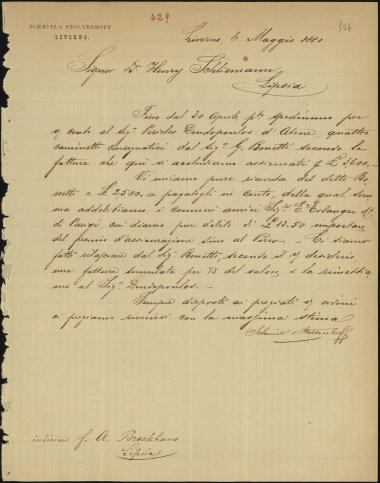 SCHMITZ & STOLTENHOFF
LIVORNO.
429
347
Livorno, 6 Maggio 1881
Signor Dr Henry Schliemann,
Lipsia
Fino dal 30 Aprile pto spedimmo per
v/ conto al Sigr Pericles Dendopoulos d'Atene, quattro
caminetti consegnatici dal Sigr G. Bonetti secondo la
fattura che qui v'accludiamo assicurati p £ 3600.
Vi uniamo pure ricevuta del detto Bo-
netti a £ 2500.= pagategli in conto, della qual som-
ma addebitiamo i comuni amici Sigri E. Erlanger &Co
di Parigi cui diamo pur debito di £ 13.50 importare
del premio d'assicurazione sino al Pireo. - Ci siamo
fatti rilasciare dal Sigr Bonetti, secondo il v/ desiderio
una fattura simulata per 1/3 del valore e la rimettia-
mo al Sigr Dendopoulos. -
Sempre disposti ai pregiati v/ ordini
vi preghiamo riceverci con la massima stima
Schmitz & Stoltenhoff
indirizzo f. A. Brockhaus
Lipsia